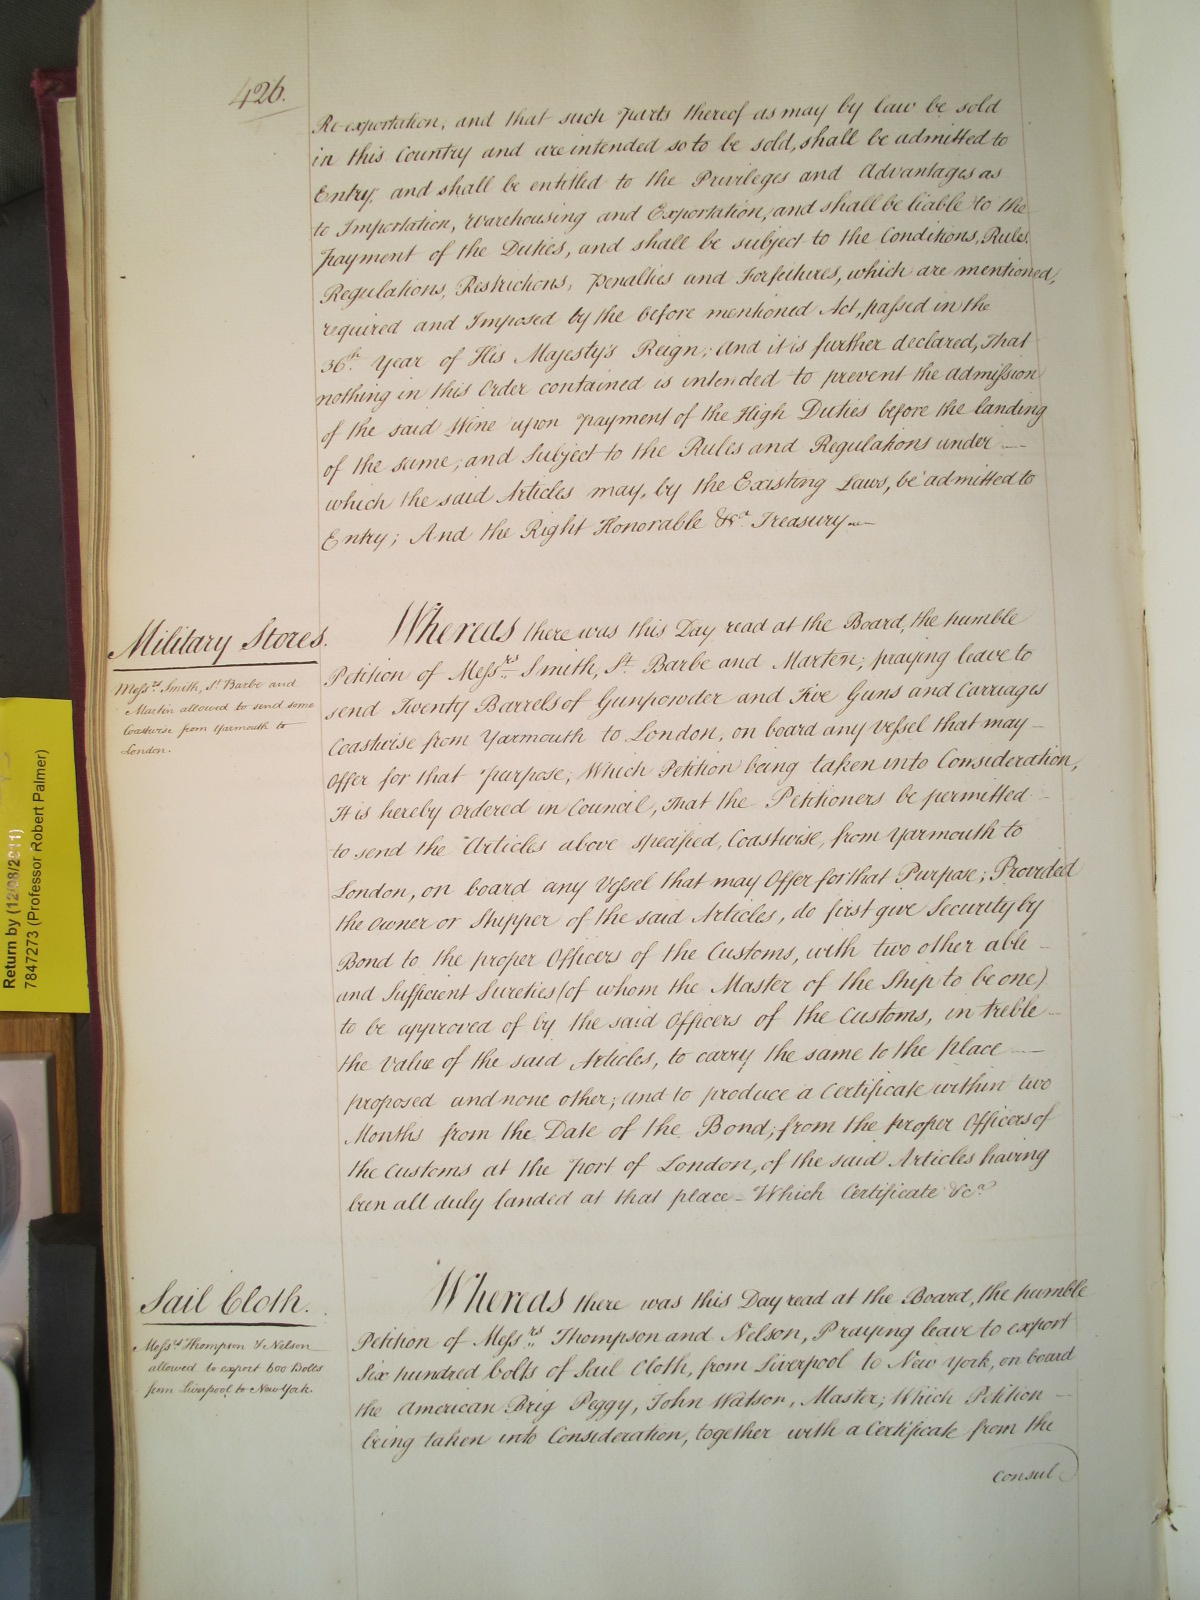 426.
Re-exportation, and that such parts thereof as may by law be sold
in this Country and are intended so to be sold, shall be admitted to
Entry, and shall be entitled to the Privileges and Advantages as
to Importation, Warehousing and Exportation, and shall be liable to the
payment of the Duties, and shall be subject to the Conditions, Rules
Regulations, Restrictions, Penalties and Forfeitures, which are mentioned,
required and Imposed by the before mentioned Act, passed in the
36th. Year of His Majesty's Reign; And it is further declared, That
nothing in this Order contained is intended to prevent the admission
of the said Wine upon payment of the High Duties before the landing
of the same, and Subject to the Rules and Regulations under —
which the said Articles may, by the Existing Laws, be admitted to
Entry; And the Right Honorable &ca. Treasury —
Military Stores.
Messrs. Smith, St. Barbe and
Martin allowed to send some
Coastwise from Yarmouth to
London.
Whereas there was this Day read at the Board, the humble
Petition of Messrs. Smith, St. Barbe and Marten; praying leave to
send Twenty Barrels of Gunpowder and Five Guns and Carriages
Coastwise from Yarmouth to London, on board any Vessel that may —
Offer for that purpose, Which Petition being taken into Consideration,
It is hereby Ordered in Council, That the Petitioners be permitted —
to send the Articles above specified, Coastwise, from Yarmouth to
London, on board any Vessel that may Offer for that Purpose; Provided
the Owner or Shipper of the said Articles, do first give Security by
Bond to the proper Officers of the Customs, with two other able —
and Sufficient Sureties (of whom the Master of the Ship to be one)
to be approved of by the said Officers of the Customs, in treble —
the Value of the said Articles, to carry the same to the place —
proposed and none other; and to produce a Certificate within two
Months from the Date of the Bond, from the proper Officers of
the Customs at the Port of London, of the said Articles having
been all duly landed at that place — Which Certificate &ca.
Sail Cloth.
Messrs. Thompson & Nelson
allowed to export 600 Bolts
from Liverpool to New York.
Whereas there was this Day read at the Board, the humble
Petition of Messrs. Thompson and Nelson, Praying leave to export
Six hundred bolts of Sail Cloth, from Liverpool to New York, on board
the American Brig Peggy, John Watson, Master; Which Petition —
being taken into Consideration, together with a Certificate from the
Consul
Return by (12/08/2011)
7847273 (Professor Robert Palmer)